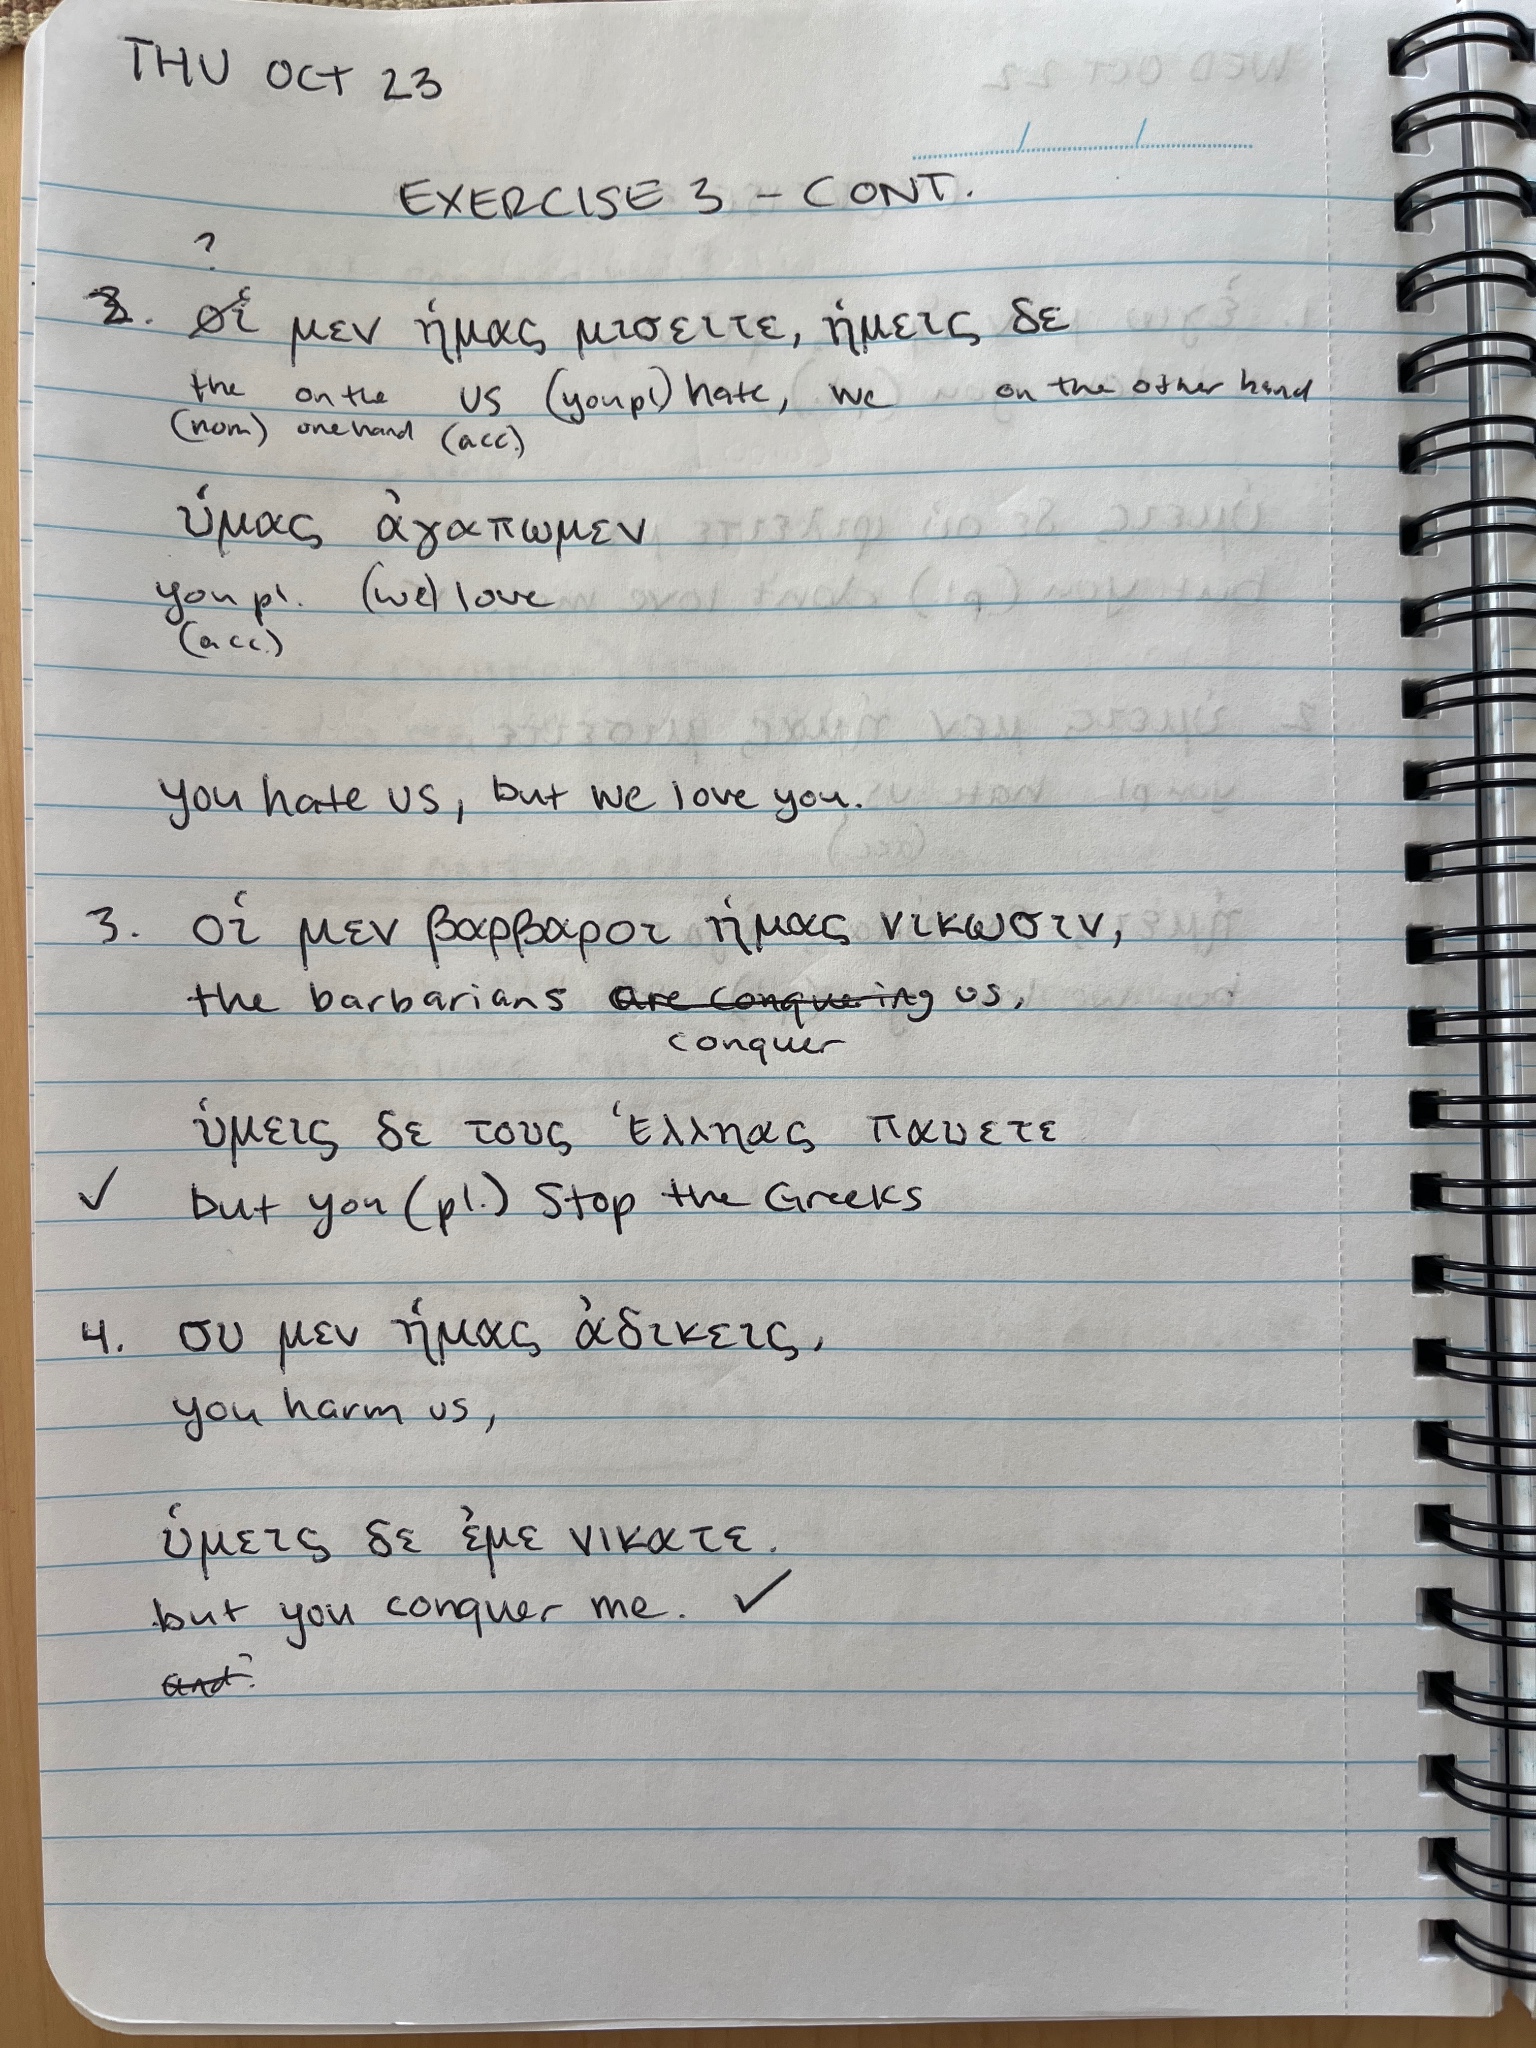 THU OCT 23
EXERCISE 3 - CONT.
?
2. οἱ μεν ἡμας μισειτε, ἡμεις δε
the on the us (you pl) hate, we on the other hand
(nom) one hand (acc.)
ὑμας ἀγαπωμεν
you pl. (we) love
(acc.)
you hate us, but we love you.
3. οἱ μεν βαρβαροι ἡμας νικωσιν,
the barbarians are conquering us,
conquer
ὑμεις δε τους Ἑλληας παυετε
✓ but you (pl.) stop the Greeks
4. συ μεν ἡμας ἀδικεις,
you harm us,
ὑμεις δε ἐμε νικατε.
but you conquer me. ✓
and?